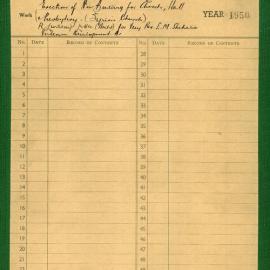 Erection of New Building for Church, Hall
Work & Presbytery. (Syrian Church) YEAR 1950
for Very Rev. E.M. Shehadie
No. DATE RECORD OF CONTENTS No. DATE RECORD OF CONTENTS
1 28
2 29
3 30
4 31
5 32
6 33
7 34
8 35
9 36
10 37
11 38
12 39
13 40
14 41
15 42
16 43
17 44
18 45
19 46
20 47
21 48
22 49